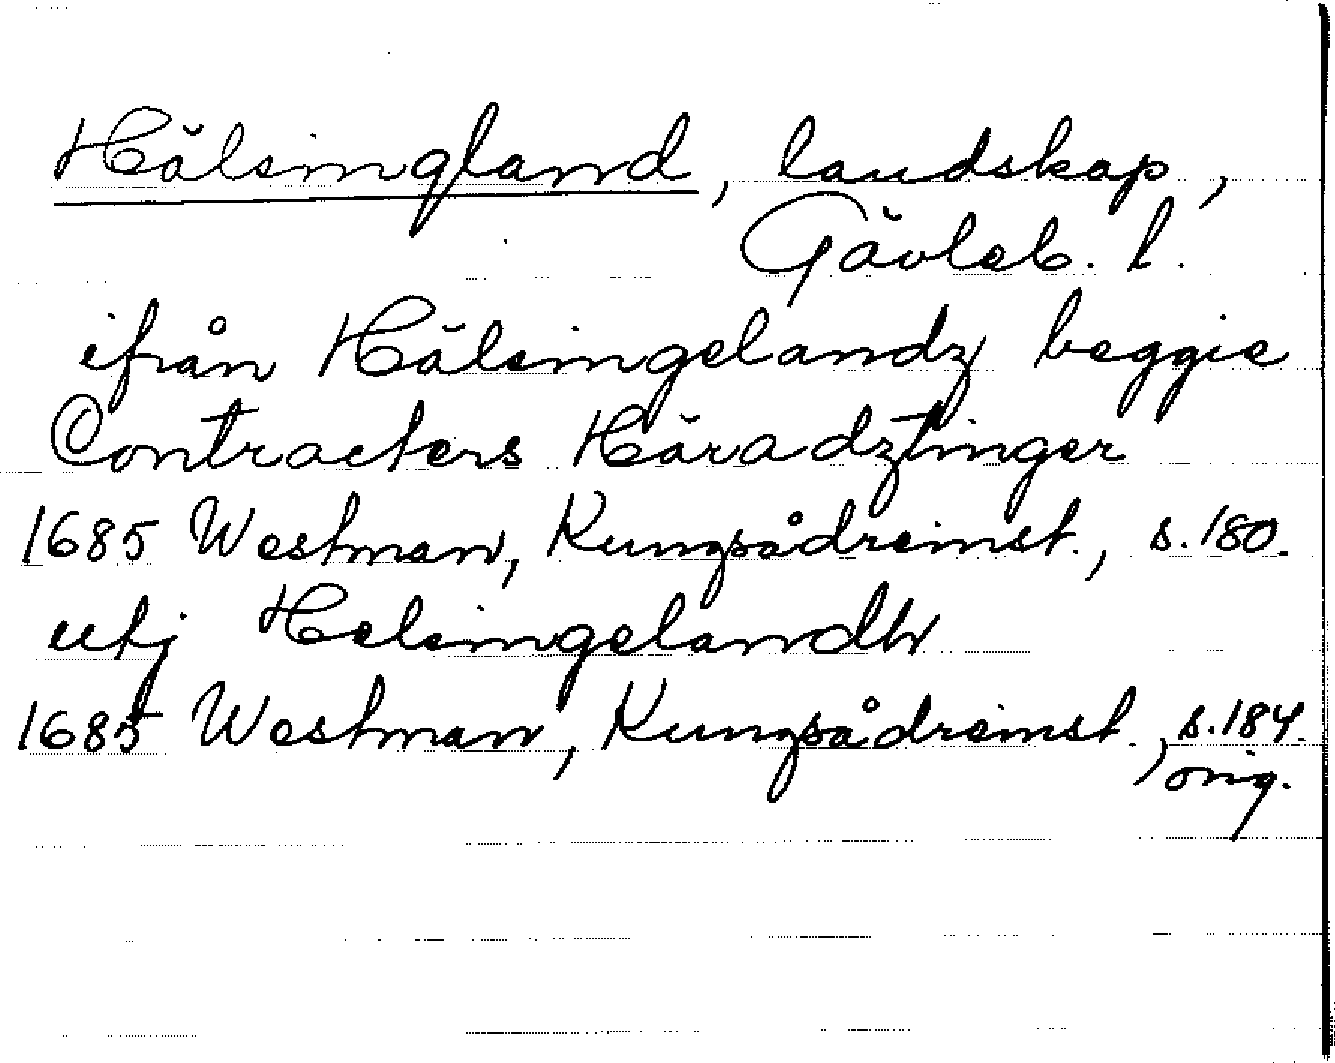 Hälsingland, landskap,
Gävleb. l.
ifrån Hälsingelandz beggie
Contracters Häradztinger
1685 Westman, Kungsådreinst., s. 180.
utij Helsingelandh
1685 Westman, Kungsådreinst., s. 184.
orig.